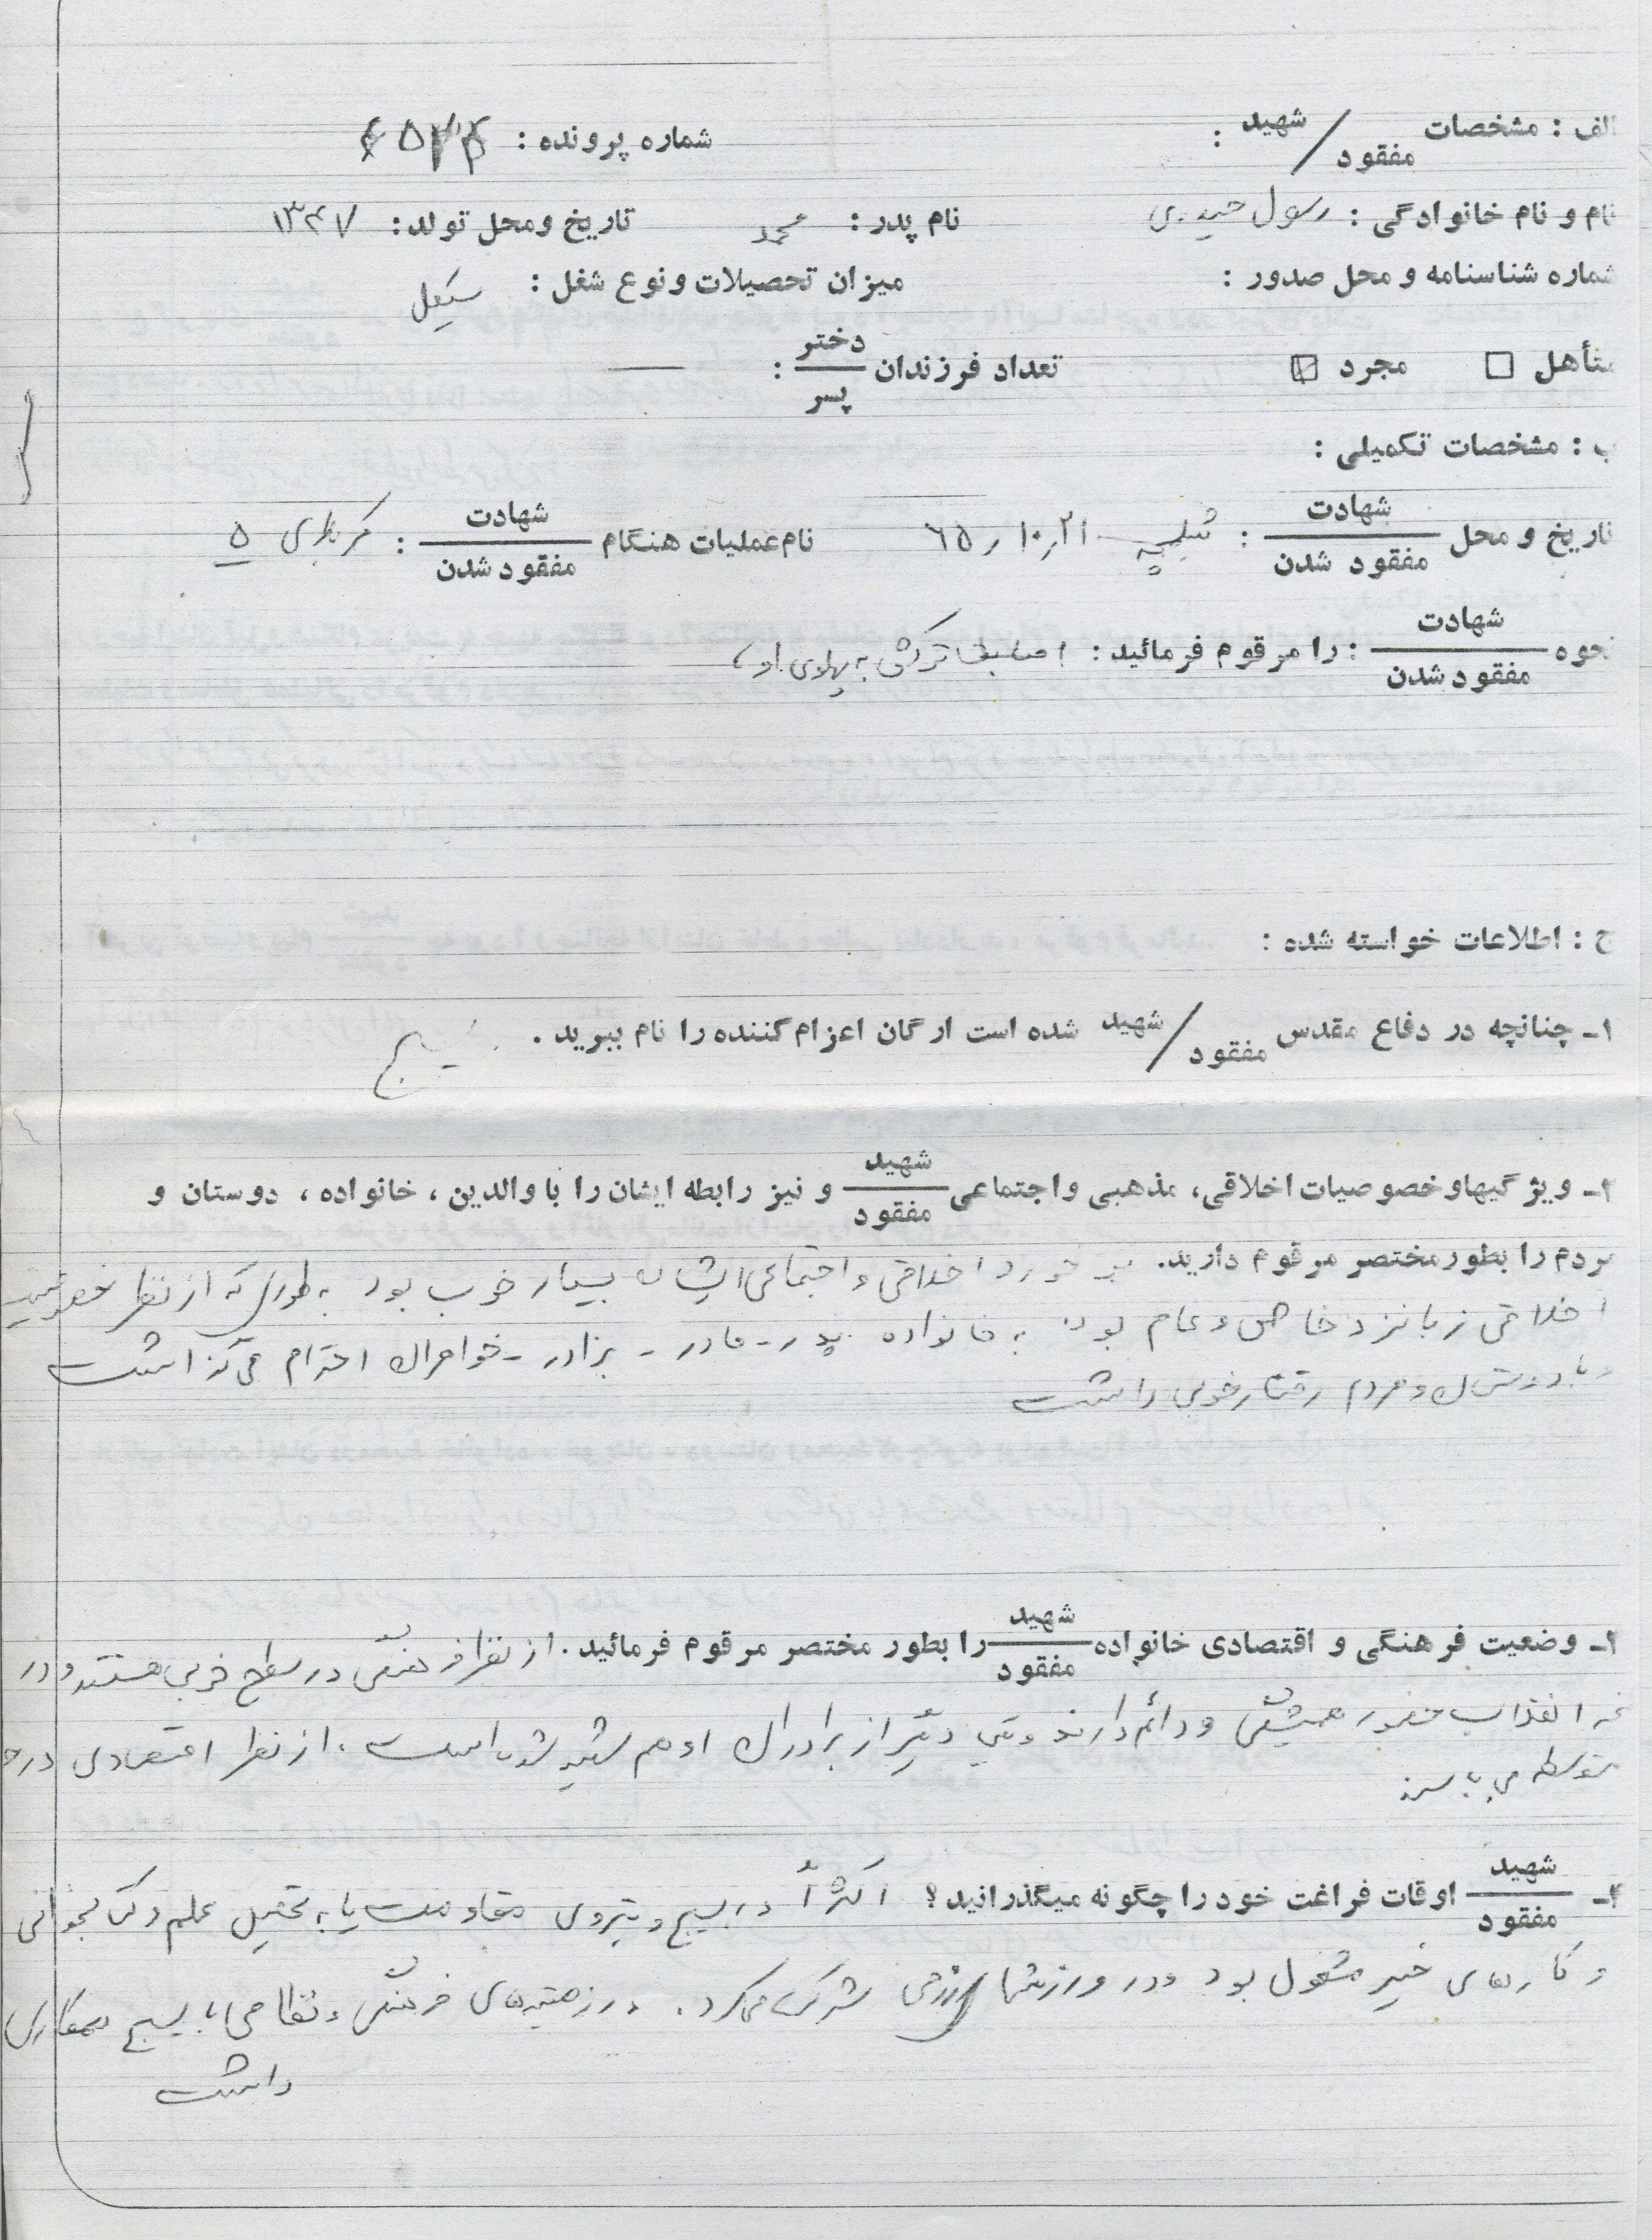 الف : مشخصات شهید / مفقود :
شماره پرونده :
نام و نام خانوادگی : رسول حیدری نام پدر : محمد تاریخ و محل تولد : ۱۳۴۷
شماره شناسنامه و محل صدور : میزان تحصیلات و نوع شغل :
متأهل □ مجرد ☑ تعداد فرزندان دختر / پسر : —
ب : مشخصات تکمیلی :
تاریخ و محل شهادت / مفقود شدن : شلمچه ۶۵,۱۰,۲۱ نام عملیات هنگام شهادت / مفقود شدن : کربلای ۵
نحوه شهادت / مفقود شدن : را مرقوم فرمائید : اصابت ترکش به پهلوی او
ج : اطلاعات خواسته شده :
۱ـ چنانچه در دفاع مقدس شهید / مفقود شده است ارگان اعزام کننده را نام ببرید . بسیج
۲ـ ویژگیها و خصوصیات اخلاقی، مذهبی و اجتماعی شهید / مفقود و نیز رابطه ایشان را با والدین ، خانواده ، دوستان و
مردم را بطور مختصر مرقوم دارید. برخورد اخلاقی و اجتماعی ایشان بسیار خوب بود به طوری که از نظر
اخلاقی زبانزد خاص و عام بود. به خانواده پدر - مادر - برادر - خواهران احترام می گذاشت
و با دوستان و مردم رفتار خوبی داشت
۳ـ وضعیت فرهنگی و اقتصادی خانواده شهید / مفقود را بطور مختصر مرقوم فرمائید . از نظر فرهنگی در سطح خوبی هستند و در
انقلاب حضور همیشگی و دائم دارند و یکی دیگر از برادران او هم شهید شده است . از نظر اقتصادی در حد
متوسطه می باشند
۴ـ شهید / مفقود اوقات فراغت خود را چگونه میگذرانید ؟ اکثراً در بسیج و نیروی مقاومت یا به تحصیل علم و کتابخوانی
و کارهای خیر مشغول بود و در ورزشها رزمی شرکت می کرد . در زمینه های فرهنگی و نظامی با بسیج همکاری
داشت